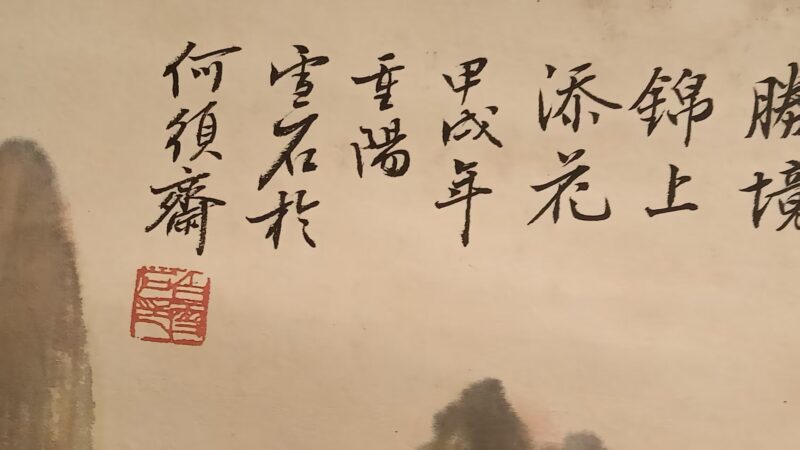 勝境
錦上
添花
甲戌年
重陽
雪石於
何須齋